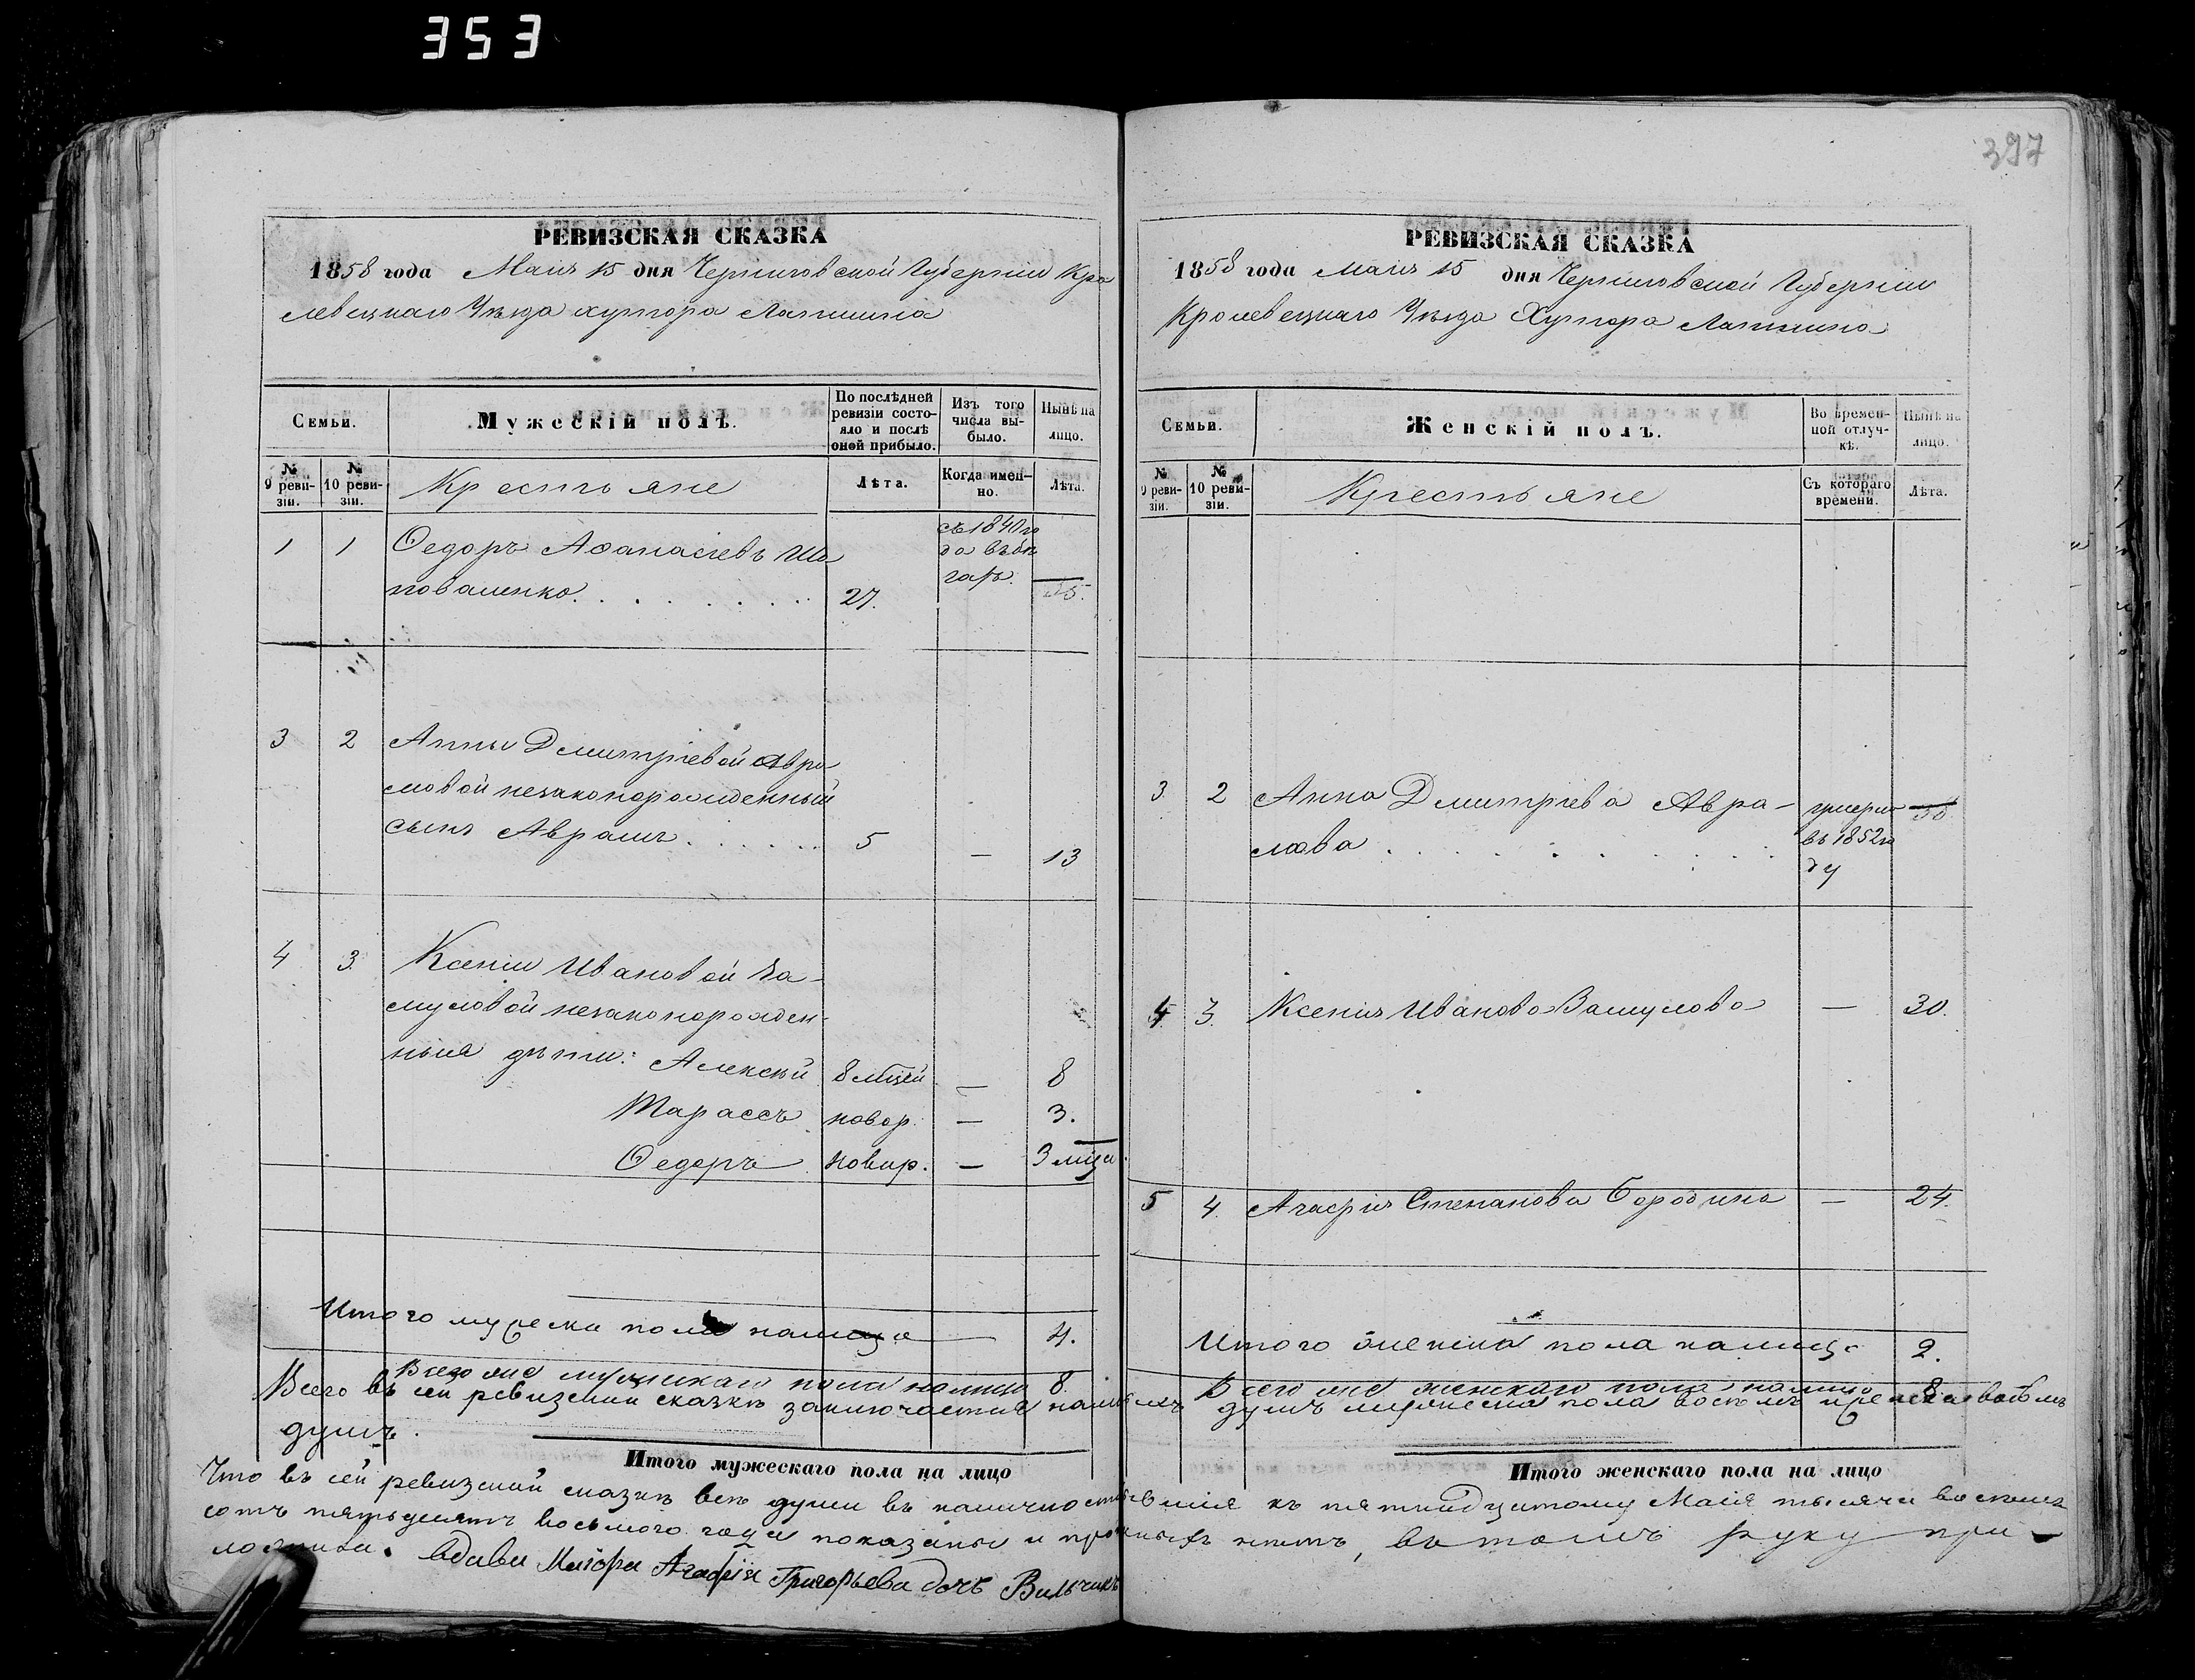 353
397
РЕВИЗСКАЯ СКАЗКА
1858 года Маія 15 дня Черниговской Губерніи Кро
левецкаго Уѣзда хутора Лапшина
Семьи.
Мужескій полъ.
По послѣдней ревизіи состояло и послѣ оной прибыло.
Изъ того числа выбыло.
Нынѣ на лицо.
№ 9 ревизіи.
№ 10 ревизіи.
Крестьяне
Лѣта.
Когда именно.
Лѣта.
1 1 Ѳедоръ Аѳанасіевъ Ша
поваленко 27. съ 1840 го
да въ бѣ
гахъ.
3 2 Анны Дмитріевой Авра
мовой незаконорожденный
сынъ Авраамъ 5 — 13
4 3 Ксеніи Ивановой За-
муловой незаконорожден-
ныя дѣти: Алексѣй 8 мцей — 8
Тарассъ новор. — 3.
Ѳедоръ новор. — 3 мца.
Итого мужеска пола налицо — 4.
Всего же мужескаго пола налицо 8.
РЕВИЗСКАЯ СКАЗКА
1858 года Маія 15 дня Черниговской Губерніи
Кролевецкаго Уѣзда Хутора Лапшина
Семьи.
Женскій полъ.
Во временной отлучкѣ.
Нынѣ на лицо.
№ 9 ревизіи.
№ 10 ревизіи.
Крестьяне
Съ котораго времени.
Лѣта.
3. 2 Анна Дмитріева Авра-
мова умерла
въ 1852 го
ду
4 3. Ксенія Иванова Замулова — 30.
5 4. Агафія Степанова Бородина — 24.
Итого женска пола налицо 2.
Всего же женскаго пола налицо 8
Всего въ сей ревизской сказкѣ заключается налицо душъ мужеска пола восемъ женска восемъ
душъ.
Итого мужескаго пола на лицо
Итого женскаго пола на лицо
Что въ сей ревизской сказкѣ всѣ души въ наличности къ пятнадцатому Маія тысяча восемь
сотъ пятьдесятъ восьмого года показаны и прописныхъ нѣтъ, въ томъ руку при-
ложила. вдова Маіора Агафія Григорьева дочь